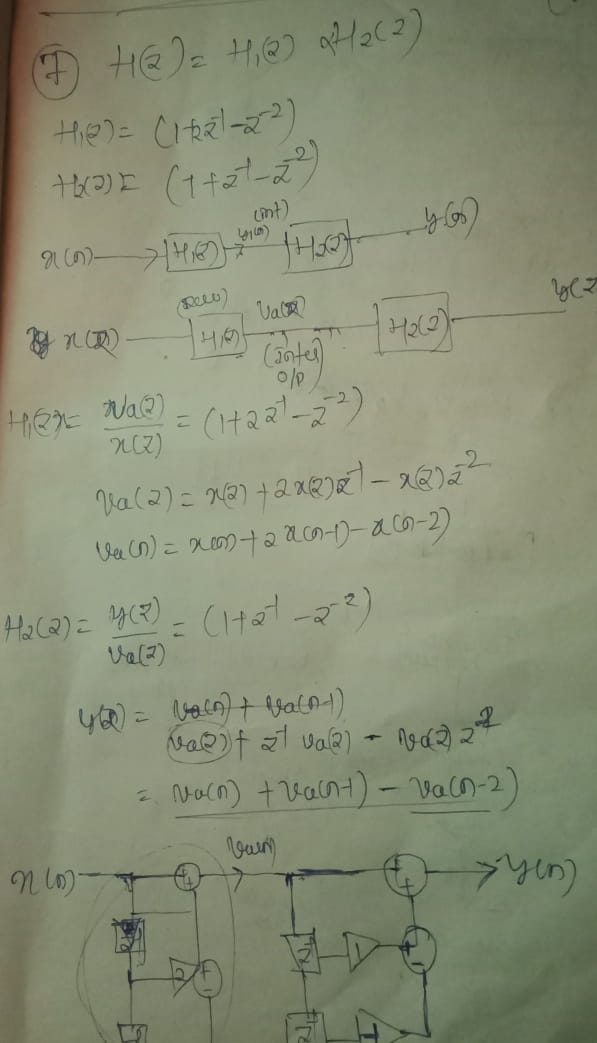 7 H(z) = H1(z) H2(z)
H1(z) = (1+2z^-1 - z^-2)
H2(z) = (1+z^-1 - z^-2)
(int)
x(n) → H1(z) H2(z) y(n)
Va(z)
x(z) H1(z) H2(z) y(z
(Inter
O/P)
H1(z) = Va(z)/x(z) = (1+2z^-1 - z^-2)
Va(z) = x(z) + 2x(z)z^-1 - x(z)z^-2
Va(n) = x(n) + 2x(n-1) - x(n-2)
H2(z) = y(z)/Va(z) = (1+z^-1 - z^-2)
y(z) = Va(n) + Va(n-1)
Va(z) + z^-1 Va(z) - Va(z) z^-2
= Va(n) + Va(n-1) - Va(n-2)
Va(n)
x(n) + + y(n)
z^-1 z^-1 1 + -
2 + -
z^-1 1